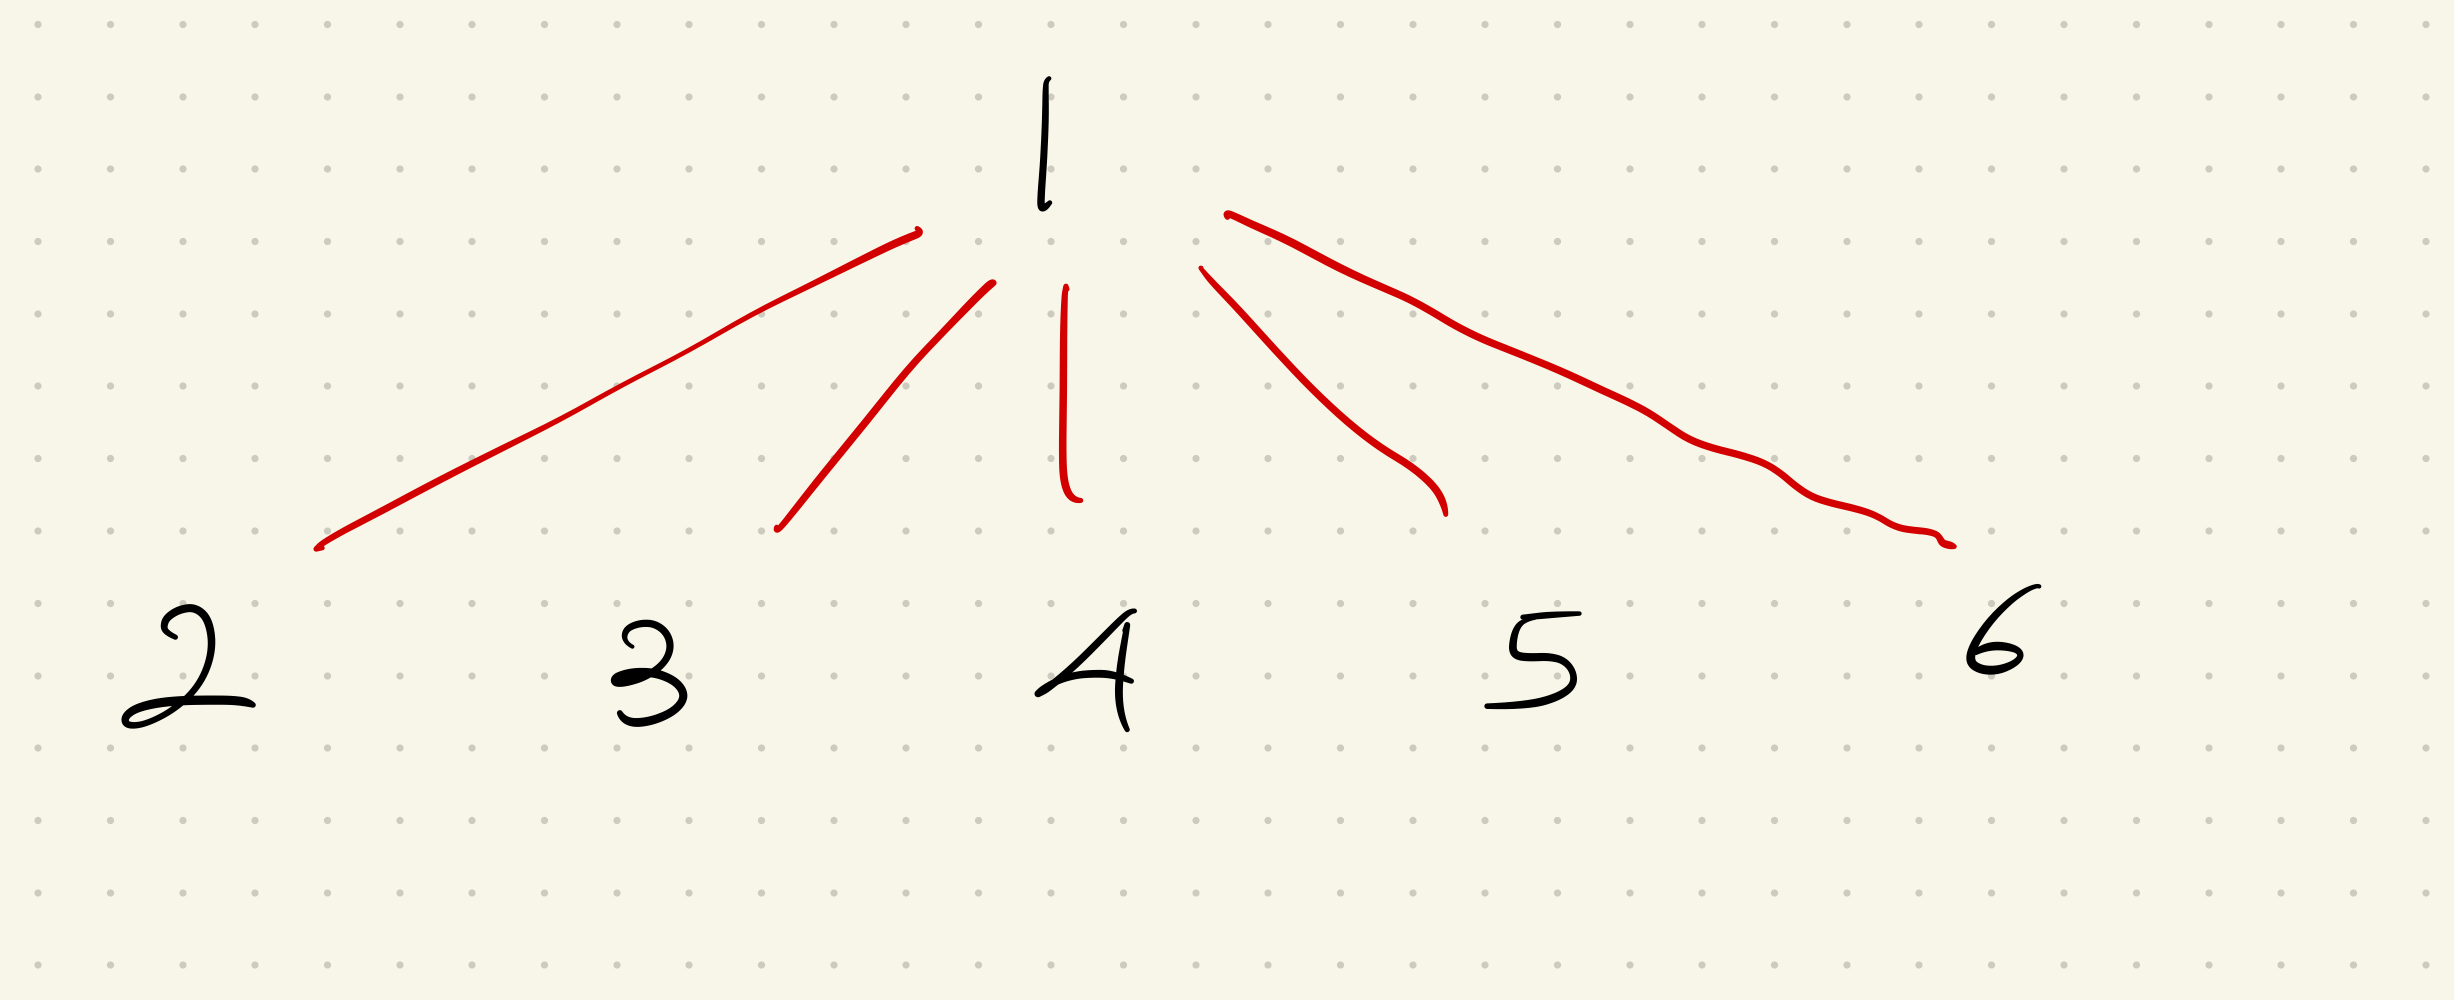 1
2 3 4 5 6